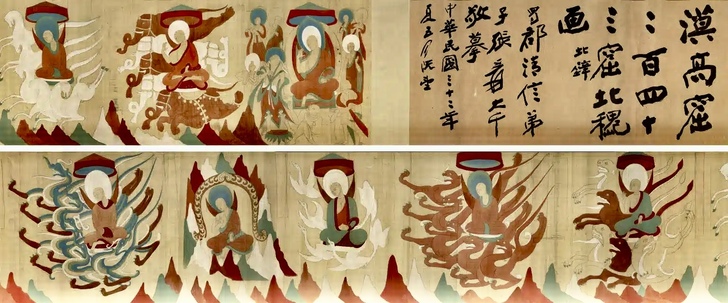 漠高窟
二百四十
三窟北魏
画
蜀郡清信弟
子張爰大千
敬摹
中華民國三十二年
夏五月